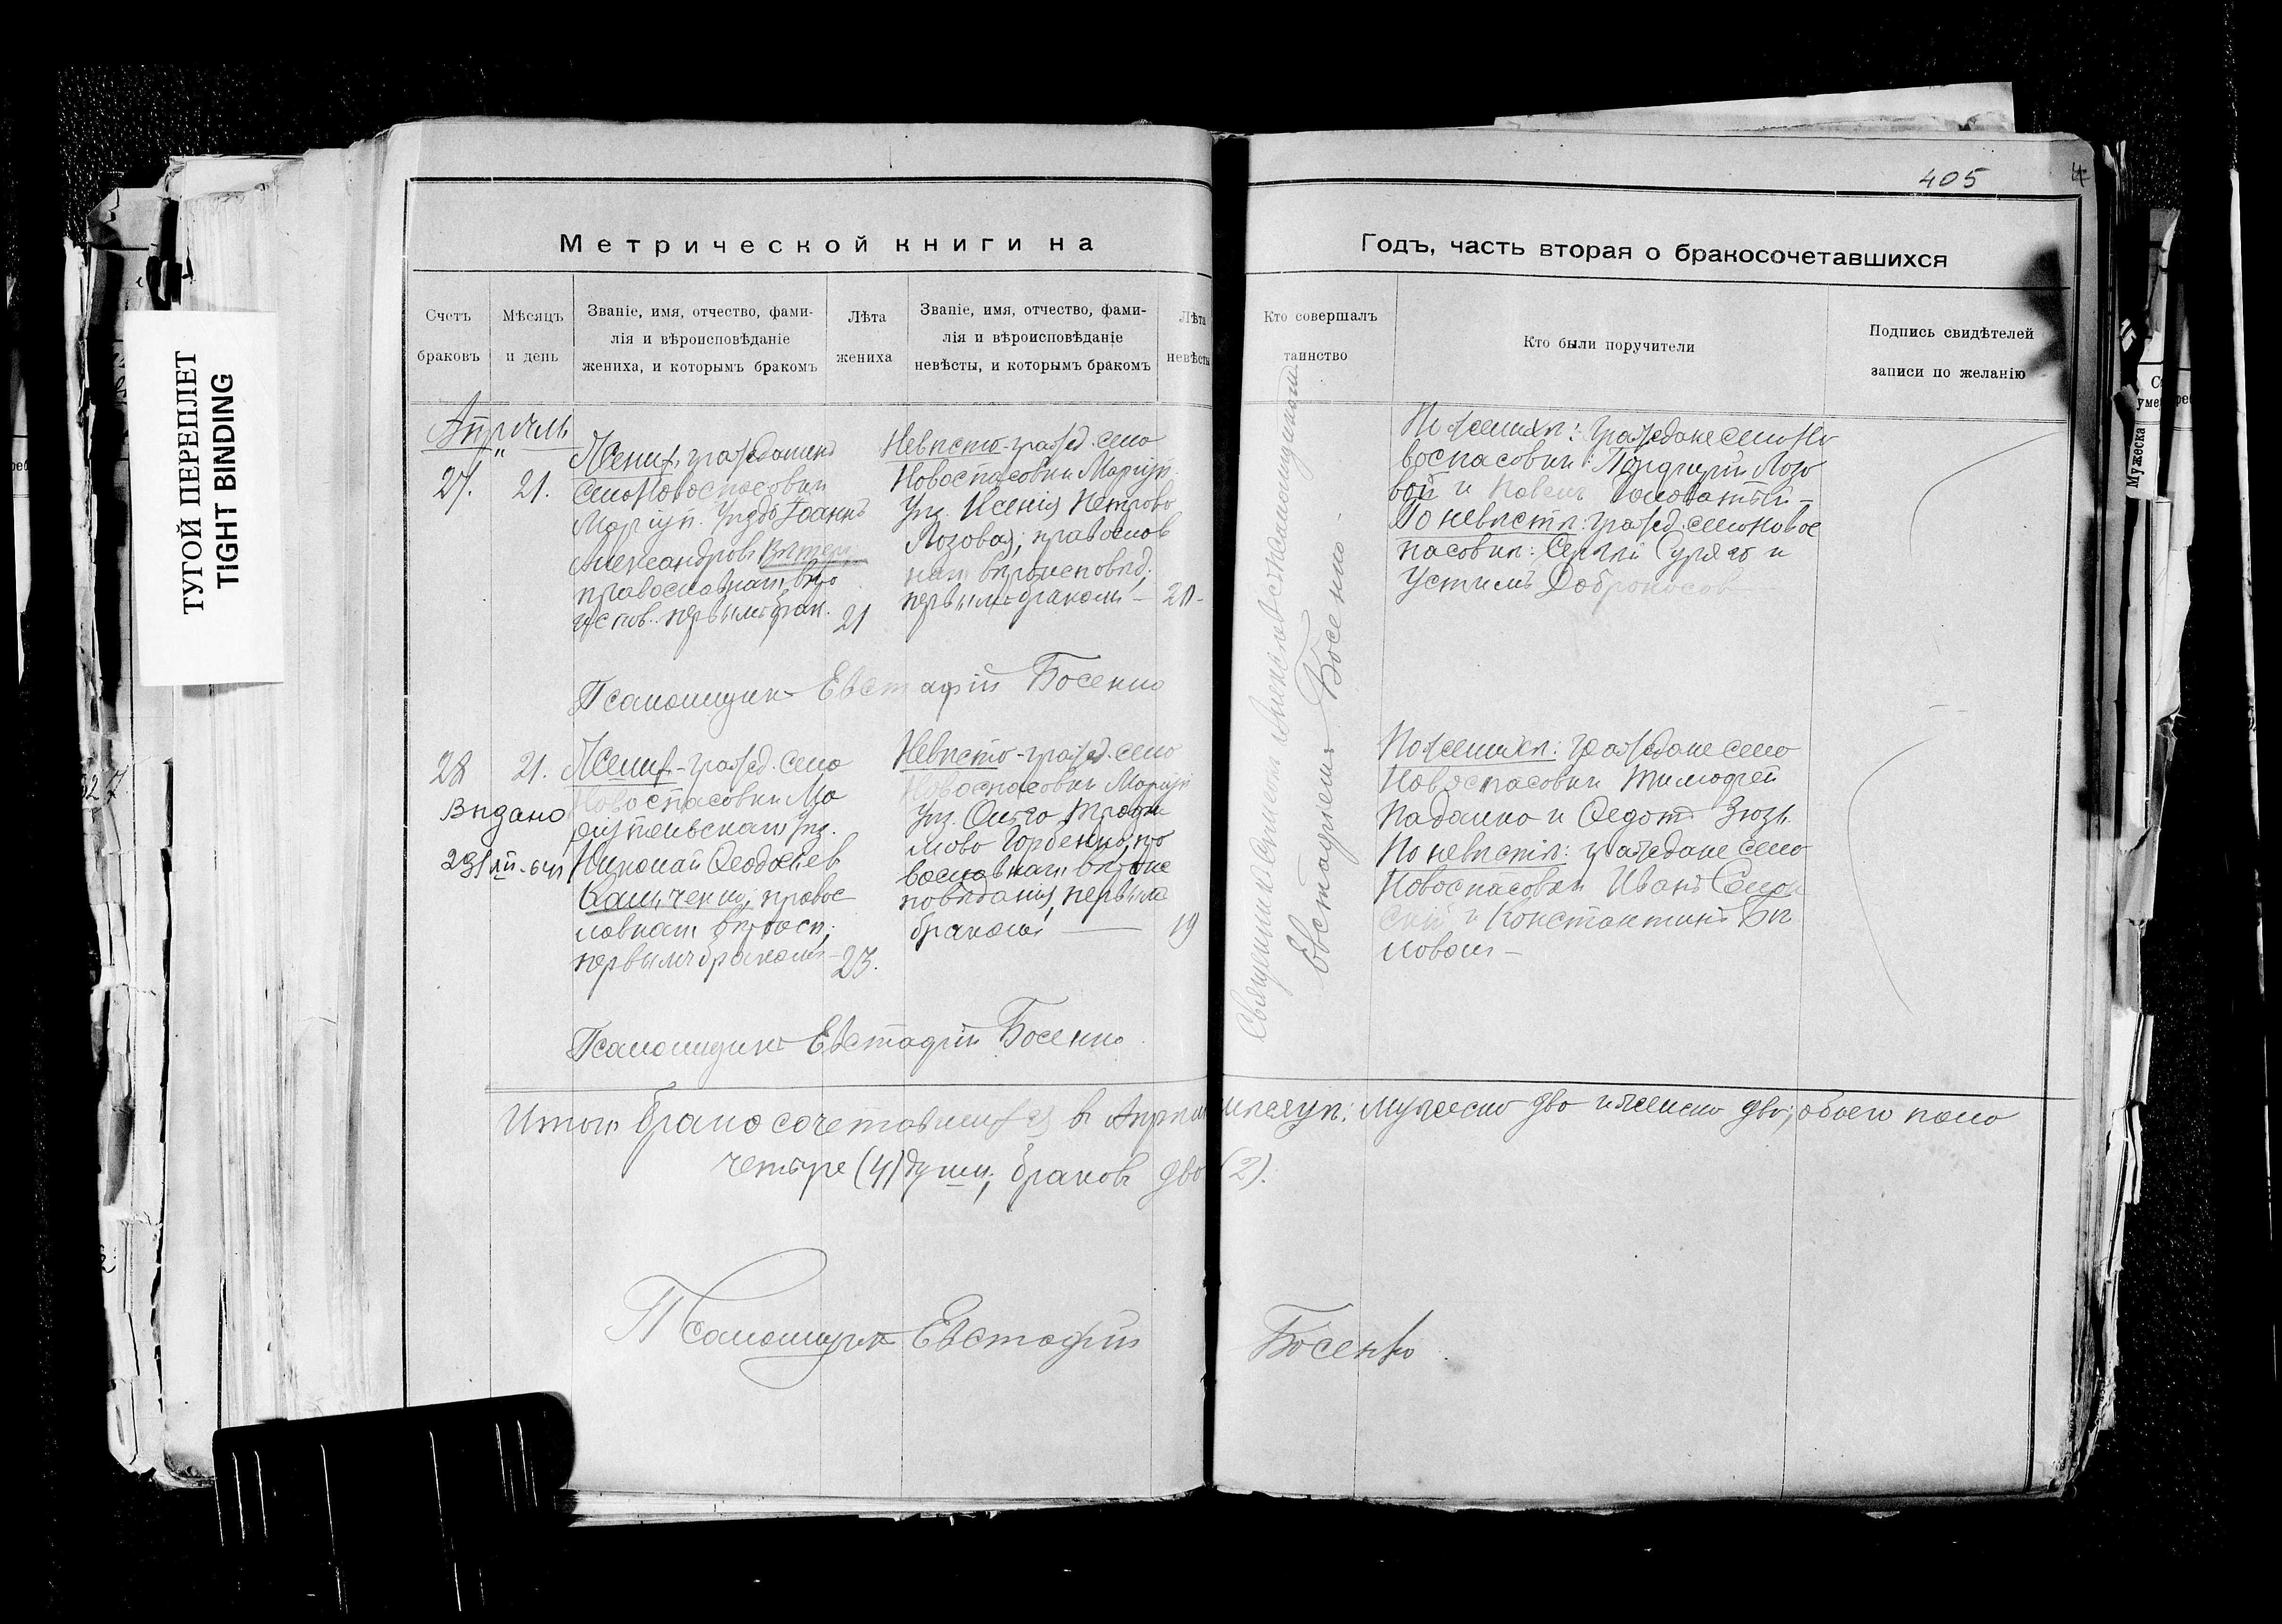 405
Метрической книги на
Годъ, часть вторая о бракосочетавшихся
Счетъ браковъ
Мѣсяцъ и день
Званіе, имя, отчество, фами-
лія и вѣроисповѣданіе
жениха, и которымъ бракомъ
Лѣта жениха
Званіе, имя, отчество, фами-
лія и вѣроисповѣданіе
невѣсты, и которымъ бракомъ
Лѣта невѣсты
Кто совершалъ таинство
Кто были поручители
Подпись свидѣтелей
записи по желанію
ТУГОЙ ПЕРЕПЛЕТ
TIGHT BINDING
Апрѣль
27. 21.
Жених, гражданинъ
села Новоспасовки
Маріуп. уѣзда Іоаннъ
Александровъ
православнаго вѣро
испов. первымъ брак.
21
Невѣста - гражд. села
Новоспасовки Маріуп.
уѣз. Ксенія Петрова
Лозовая, православ
наго вѣроисповѣд.
первымъ бракомъ —
20 -
По женихѣ: граждане села Но
воспасовки: Порфирій Лозо
вой и Павелъ Головатый -
По невѣстѣ: гражд. села Новос
пасовки: Сергѣй и
Устимъ Доброносов
Псаломщикъ Евстафій Босенко
28 21.
Видано
Жених - гражд. села
Новоспасовки Ма
ріупольскаго уѣз.
Николай Феодосіев
правос
лавнаго вѣроисп.
первымъ бракомъ -
23.
Невѣста - гражд. села
Новоспасовки Маріуп
уѣз. Ольга Трофи
мова Горбенко, пра
вославнаго вѣроис
повѣданія, первым
бракомъ —
19
Евстафіемъ Босенко
По женихѣ: граждане села
Новоспасовки Тимофей
Падалка и Федотъ Зюзь.
По невѣстѣ: граждане села
Новоспасовки Иванъ
и Константинъ Бѣ
ловол -
Псаломщикъ Евстафій Босенко
Итого бракосочетавшихся въ Апрѣлѣ мѣсяцѣ: мужеска два и женска два, обоего пола
четыре (4) души, браковъ два (2).
Псаломщикъ Евстафій Босенко
Мужеска